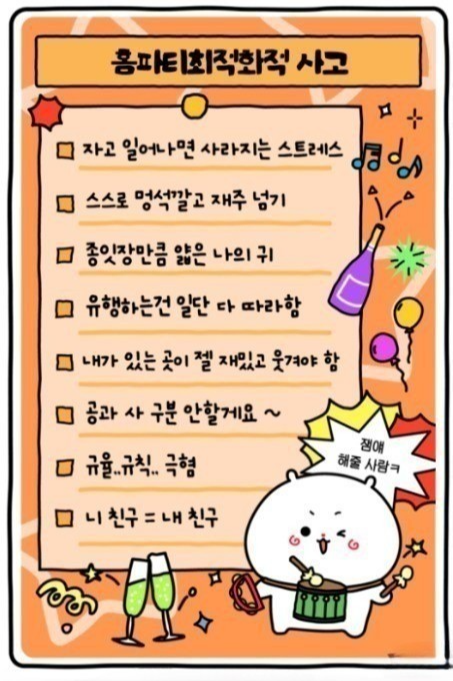 홈파티최적화적 사고
자고 일어나면 사라지는 스트레스
스스로 멍석깔고 재주 넘기
종잇장만큼 얇은 나의 귀
유행하는건 일단 다 따라함
내가 있는 곳이 젤 재밌고 웃겨야 함
공과 사 구분 안할게요 ~
규율..규칙.. 극혐
니 친구 = 내 친구
잼얘
해줄 사람ㅋ